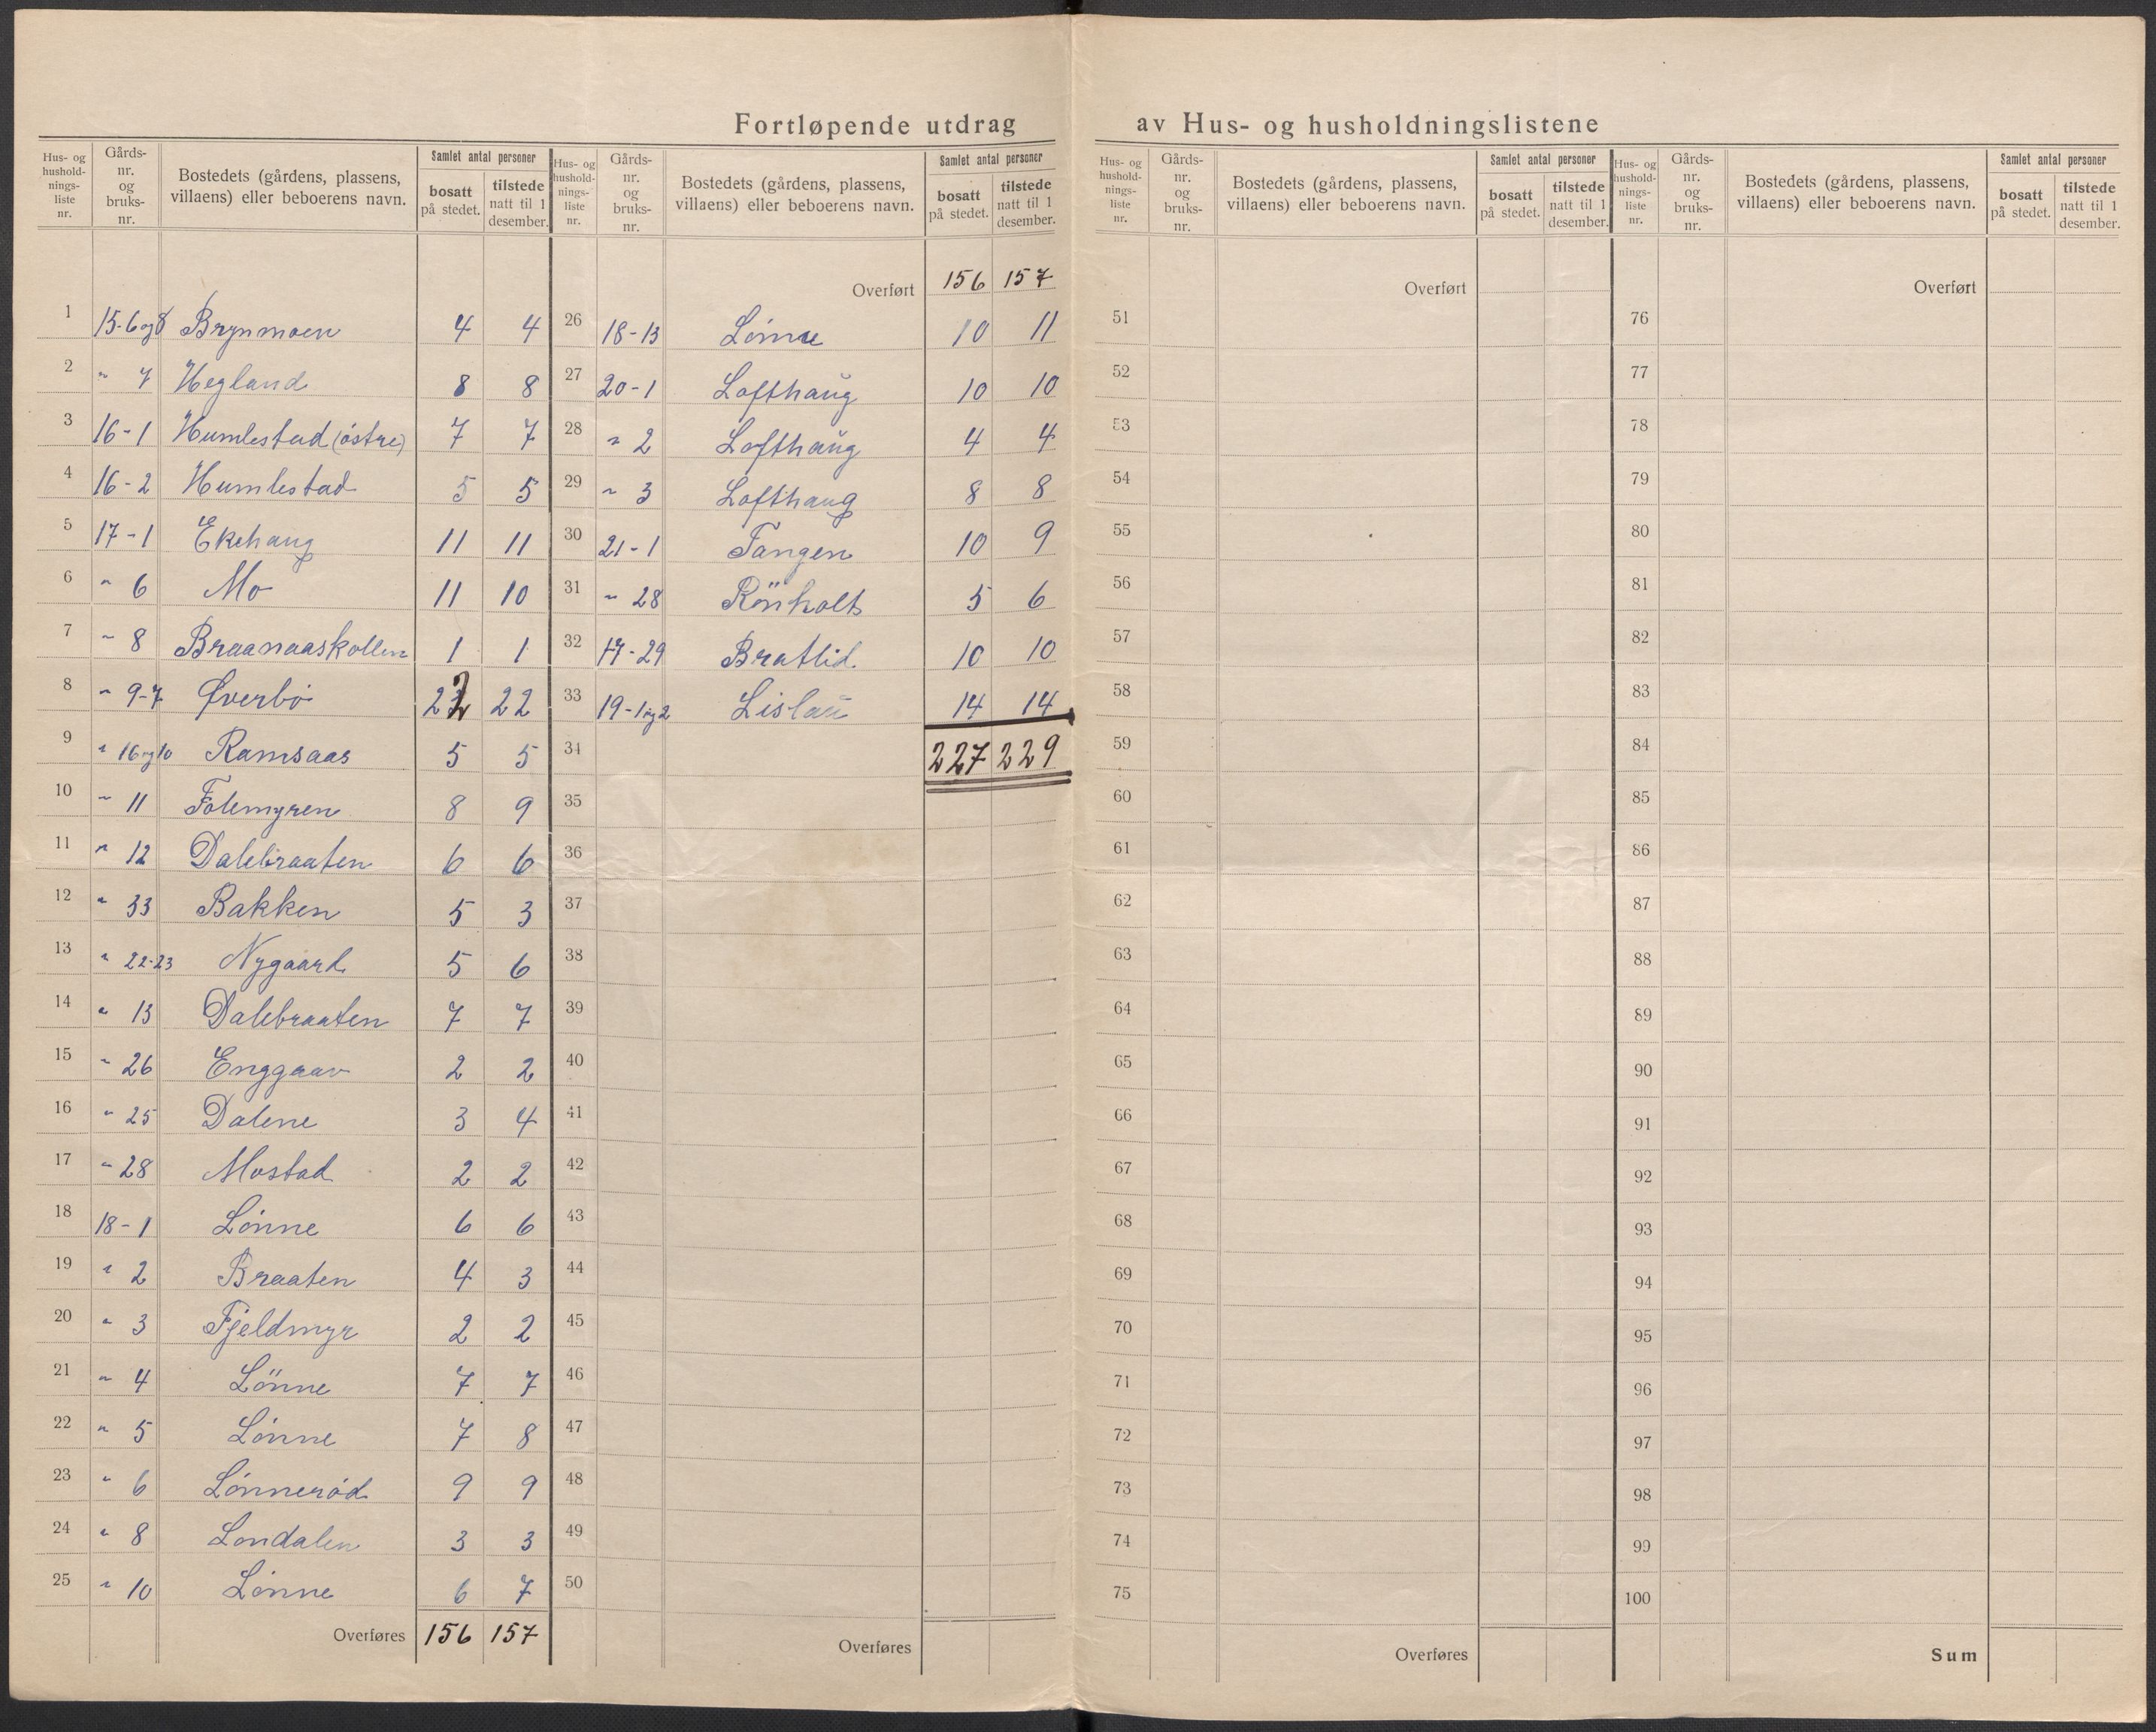 Fortløpende utdrag av Hus- og husholdningslistene
Hus- og hushold-nings-liste nr. | Gårds-nr. og bruks-nr. | Bostedets (gårdens, plassens, villaens) eller beboerens navn. | Samlet antal personer | bosatt på stedet. | tilstede natt til 1 desember.
1 15-6og8 Brynmoen 4 4
2 " 7 Hegland 8 8
3 16-1 Humlestad (östre) 7 7
4 16-2 Humlestad 5 5
5 17-1 Ekehaug 11 11
6 " 6 Mo 11 10
7 " 8 Braanaaskollen 1 1
8 " 9-7 Øverbö 22 22
9 " 16og10 Ramsaas 5 5
10 " 11 Folemyren 8 9
11 " 12 Dalebraaten 6 6
12 " 33 Bakken 5 3
13 " 22-23 Nygaard 5 6
14 " 13 Dalebraaten 7 7
15 " 26 Enggaav 2 2
16 " 25 Dalene 3 4
17 " 28 Mostad 2 2
18 18-1 Lönne 6 6
19 " 2 Braaten 4 3
20 " 3 Fjeldmyr 2 2
21 " 4 Lönne 7 7
22 " 5 Lönne 7 8
23 " 6 Lönneröd 9 9
24 " 8 Löndalen 3 3
25 " 10 Lönne 6 7
Overføres 156 157
Hus- og hushold-nings-liste nr. | Gårds-nr. og bruks-nr. | Bostedets (gårdens, plassens, villaens) eller beboerens navn. | Samlet antal personer | bosatt på stedet. | tilstede natt til 1 desember.
Overført 156 157
26 18-13 Lönne 10 11
27 20-1 Lofthaug 10 10
28 " 2 Lofthaug 4 4
29 " 3 Lofthaug 8 8
30 21-1 Tangen 10 9
31 " 28 Rönholt 5 6
32 17-29 Bratlid 10 10
33 19-1og2 Lislau 14 14
34 227 229
35
36
37
38
39
40
41
42
43
44
45
46
47
48
49
50
Overføres
Hus- og hushold-nings-liste nr. | Gårds-nr. og bruks-nr. | Bostedets (gårdens, plassens, villaens) eller beboerens navn. | Samlet antal personer | bosatt på stedet. | tilstede natt til 1 desember.
Overført
51
52
53
54
55
56
57
58
59
60
61
62
63
64
65
66
67
68
69
70
71
72
73
74
75
Overføres
Hus- og hushold-nings-liste nr. | Gårds-nr. og bruks-nr. | Bostedets (gårdens, plassens, villaens) eller beboerens navn. | Samlet antal personer | bosatt på stedet. | tilstede natt til 1 desember.
Overført
76
77
78
79
80
81
82
83
84
85
86
87
88
89
90
91
92
93
94
95
96
97
98
99
100
Sum